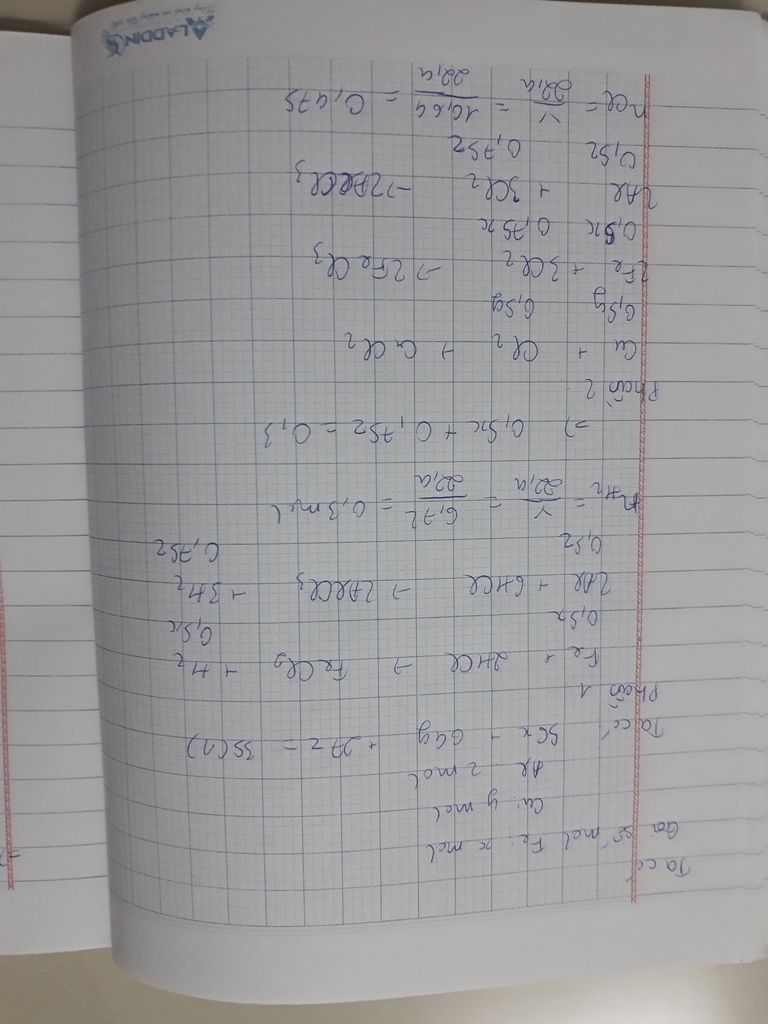 Ta có
Gọi số mol Fe: x mol
Cu: y mol
Al: z mol
Ta có: 56x + 64y + 27z = 35 (1)
Phần 1
Fe + 2HCl → FeCl2 + H2
0,5x 0,5x
2Al + 6HCl → 2AlCl3 + 3H2
0,5z 0,75z
nH2 = V/22,4 = 6,72/22,4 = 0,3 mol
=> 0,5x + 0,75z = 0,3
Phần 2
Cu + Cl2 → CuCl2
0,5y 0,5y
2Fe + 3Cl2 → 2FeCl3
0,5x 0,75x
2Al + 3Cl2 → 2AlCl3
0,5z 0,75z
nCl = V/22,4 = 10,64/22,4 = 0,475
ALADDIN